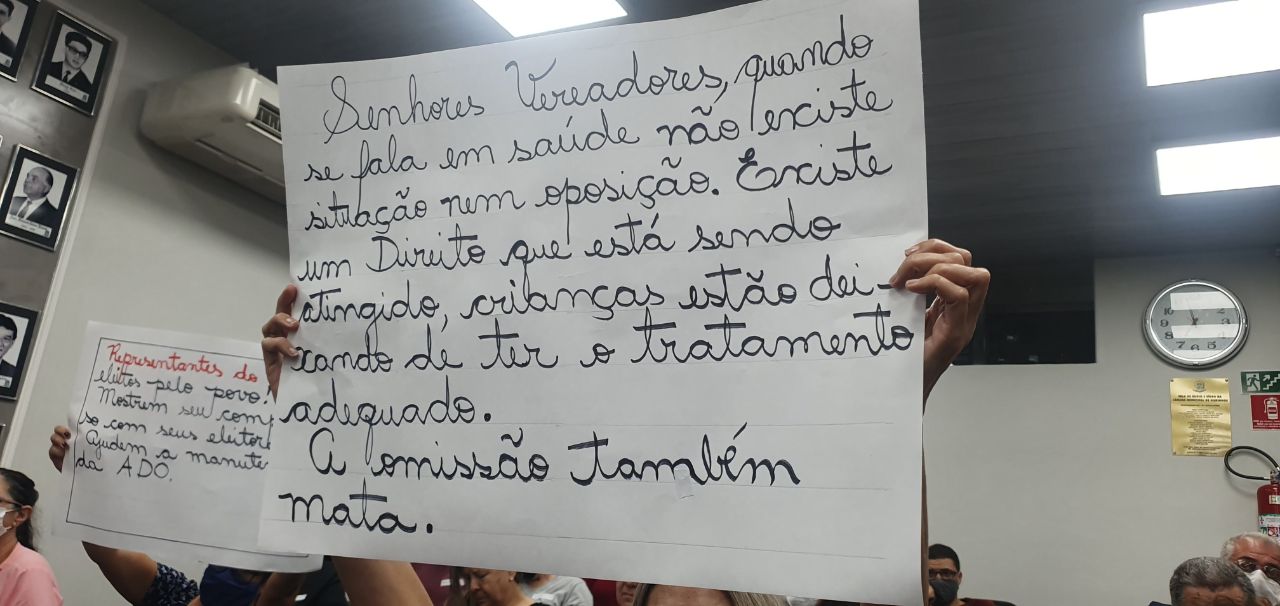 Senhores Vereadores, quando
se fala em saúde não existe
situação nem oposição. Existe
um Direito que está sendo
atingido, crianças estão dei-
xando de ter o tratamento
adequado.
A omissão também
mata.
Representantes do
eleitos pelo povo!
Mostrem seu com
so com seus eleitore
Ajudem a manute
da ADO.